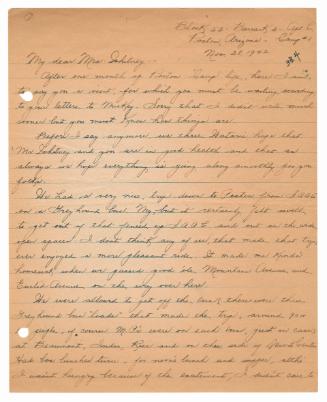 Block 22- Barrack 2- Apt C
Poston, Arizona - Camp #1
Nov. 28, 1942
My dear Mrs.
After one month of Poston Camp life, here I
to pay you a visit, for which you must be waiting according
to your letters to Mickey. Sorry that I didn't write much
sooner but you must know how things are.
Before I say anymore we three hope that
Mr. and you are in good health and that as
always we hope everything is going along smoothly for you
folks.
We had a very nice, trip down to Poston from
on a Greyhound bus. My, but it certainly felt swell
to get out of that fenced up and out in the wide
open spaces! I don't think any of us that made that trip
ever enjoyed a more pleasant ride. It made me kinda
homesick when we passed good ole Mountain Avenue and
Euclid Avenue on the way over here.
We were allowed to get off the bus, there were three
Greyhound bus loads that made the trip, around 900
people, of course M.Ps were on each bus, just in case,
at Beaumont, Indio, Rice and on this side of
Had box lunches twice - for noon lunch and supper, altho
I wasn't hungry because of the excitement, I didn't care to